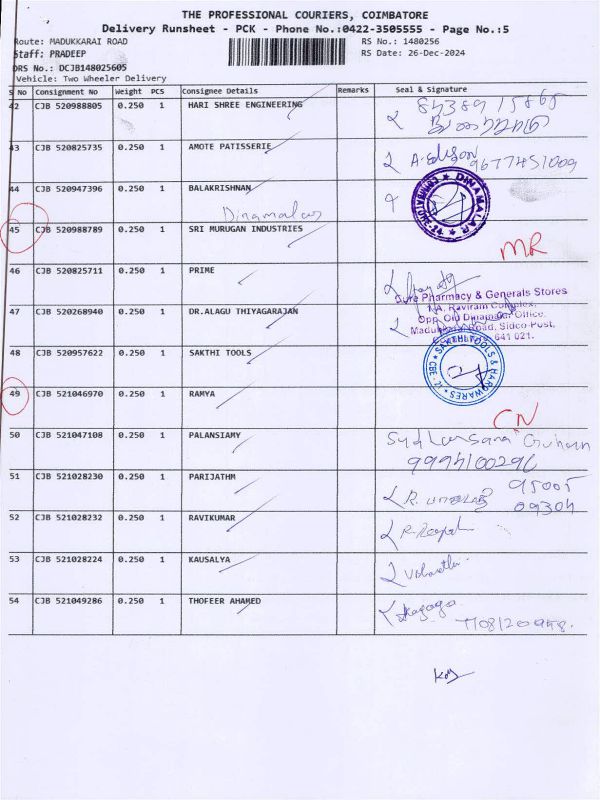 THE PROFESSIONAL COURIERS, COIMBATORE
Delivery Runsheet - PCK - Phone No.:0422-3505555 - Page No.:5
Route: MADUKKARAI ROAD
RS No.: 1480256
Staff: PRADEEP
RS Date: 26-Dec-2024
DRS No.: DCJB148025605
Vehicle: Two Wheeler Delivery
S No Consignment No Weight PCS Consignee Details Remarks Seal & Signature
42 CJB 520988805 0.250 1 HARI SHREE ENGINEERING
43 CJB 520825735 0.250 1 AMOTE PATISSERIE A. Edison 9677451009
44 CJB 520947396 0.250 1 BALAKRISHNAN
Dinamalar
DINAMALAR
45 CJB 520988789 0.250 1 SRI MURUGAN INDUSTRIES MR
46 CJB 520825711 0.250 1 PRIME
Sure Pharmacy & Generals Stores
1/A, Raviram Complex,
47 CJB 520268940 0.250 1 DR.ALAGU THIYAGARAJAN Opp. Old Dinamalar Office,
Madukkarai Road, Sidco Post,
641 021.
48 CJB 520957622 0.250 1 SAKTHI TOOLS SAKTHI TOOLS & HARDWARES
49 CJB 521046970 0.250 1 RAMYA CN
50 CJB 521047108 0.250 1 PALANSIAMY
51 CJB 521028230 0.250 1 PARIJATHM 95005
09304
52 CJB 521028232 0.250 1 RAVIKUMAR
53 CJB 521028224 0.250 1 KAUSALYA
54 CJB 521049286 0.250 1 THOFEER AHAMED